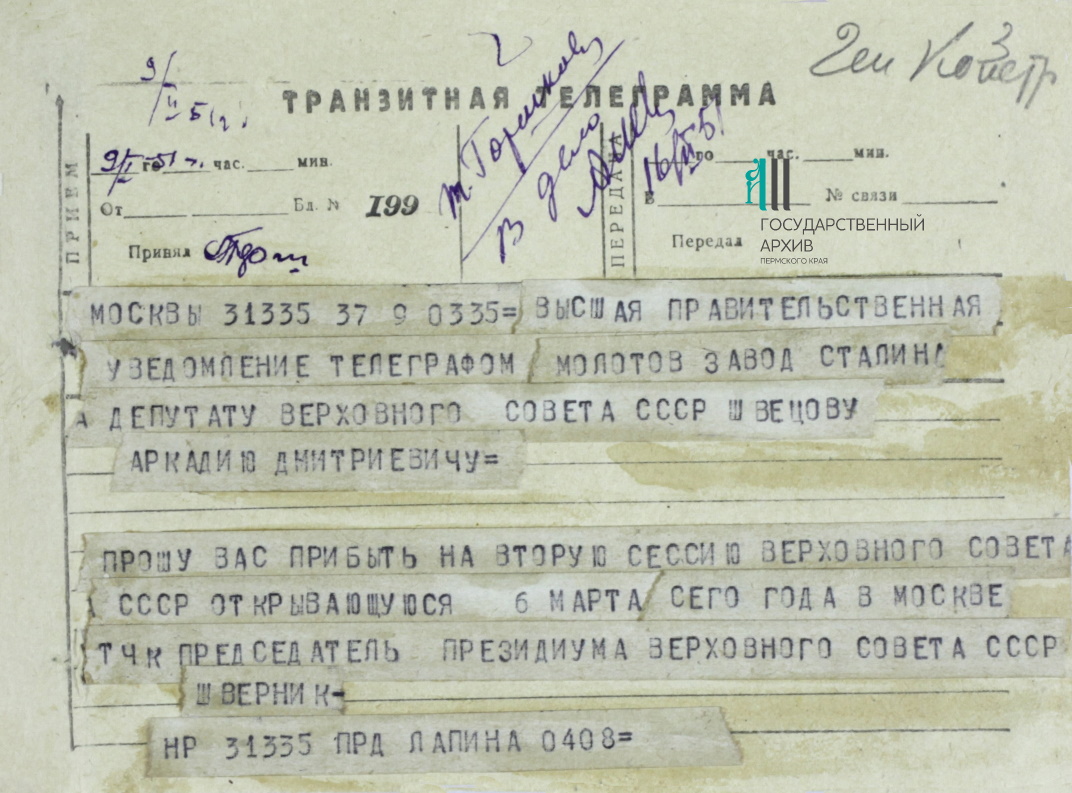 9/II 51 г.
ТРАНЗИТНАЯ ТЕЛЕГРАММА
т. Горшкову
В дело
16/II 51
ПРИЕМ
9/II-51 го час. мин.
От Бл. № 199
Принял
ПЕРЕДАЧА
го час. мин.
в № связи
Передал
ГОСУДАРСТВЕННЫЙ
АРХИВ
ПЕРМСКОГО КРАЯ
МОСКВЫ 31335 37 9 0335= ВЫСШАЯ ПРАВИТЕЛЬСТВЕННАЯ
УВЕДОМЛЕНИЕ ТЕЛЕГРАФОМ МОЛОТОВ ЗАВОД СТАЛИНА
А ДЕПУТАТУ ВЕРХОВНОГО СОВЕТА СССР ШВЕЦОВУ
АРКАДИЮ ДМИТРИЕВИЧУ=
ПРОШУ ВАС ПРИБЫТЬ НА ВТОРУЮ СЕССИЮ ВЕРХОВНОГО СОВЕТА
СССР ОТКРЫВАЮЩУЮСЯ 6 МАРТА СЕГО ГОДА В МОСКВЕ
ТЧК ПРЕДСЕДАТЕЛЬ ПРЕЗИДИУМА ВЕРХОВНОГО СОВЕТА СССР
ШВЕРНИК-
НР 31335 ПРД ЛАПИНА 0408=